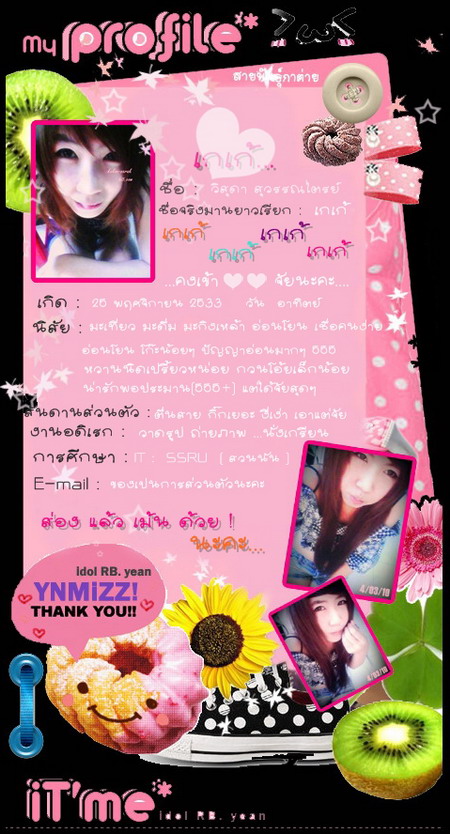 my profile**
>w<
สายพันธุ์กาต่าย
เกเก้...
ชื่อ : วิสุดา สุวรรณไตรย์
ชื่อจริงมานยาวเรียก : เกเก้
เกเก้ เกเก้ เกเก้ เกเก้
...คงเจ้า จัยนะคะ....
เกิด : 25 พฤศจิกายน 2533 วัน อาทิตย์
นิสัย : มะเขียว มะดื่ม มะกิงเหล้า อ่อนโยน เชื่อคนง่าย
อ่อนโยน โก๊ะน้อยๆ ปัญญาอ่อนมากๆ 555
หวานนิดเปรี้ยวหน่อย กวนโอ๊ยเล็กน้อย
น่ารักพอประมาน(555+) แต่ได้จัยสุดๆ
สันดานส่วนตัว : ตื่นสาย กิ๊กเยอะ ขี้เหงา เอาแต่จัย
งานอดิเรก : วาดรูป ถ่ายภาพ ...นั่งเกรียน
การศึกษา : IT : SSRU ( สวนนัน )
E-mail : ของเปนการส่วนตัวนะคะ
ส่อง แล้ว เม้น ด้วย !
นะคะ...
4/03/10
idol RB. yean
YNMiZZ!
THANK YOU!!
4/03/10
iT'me**
idol RB. yean